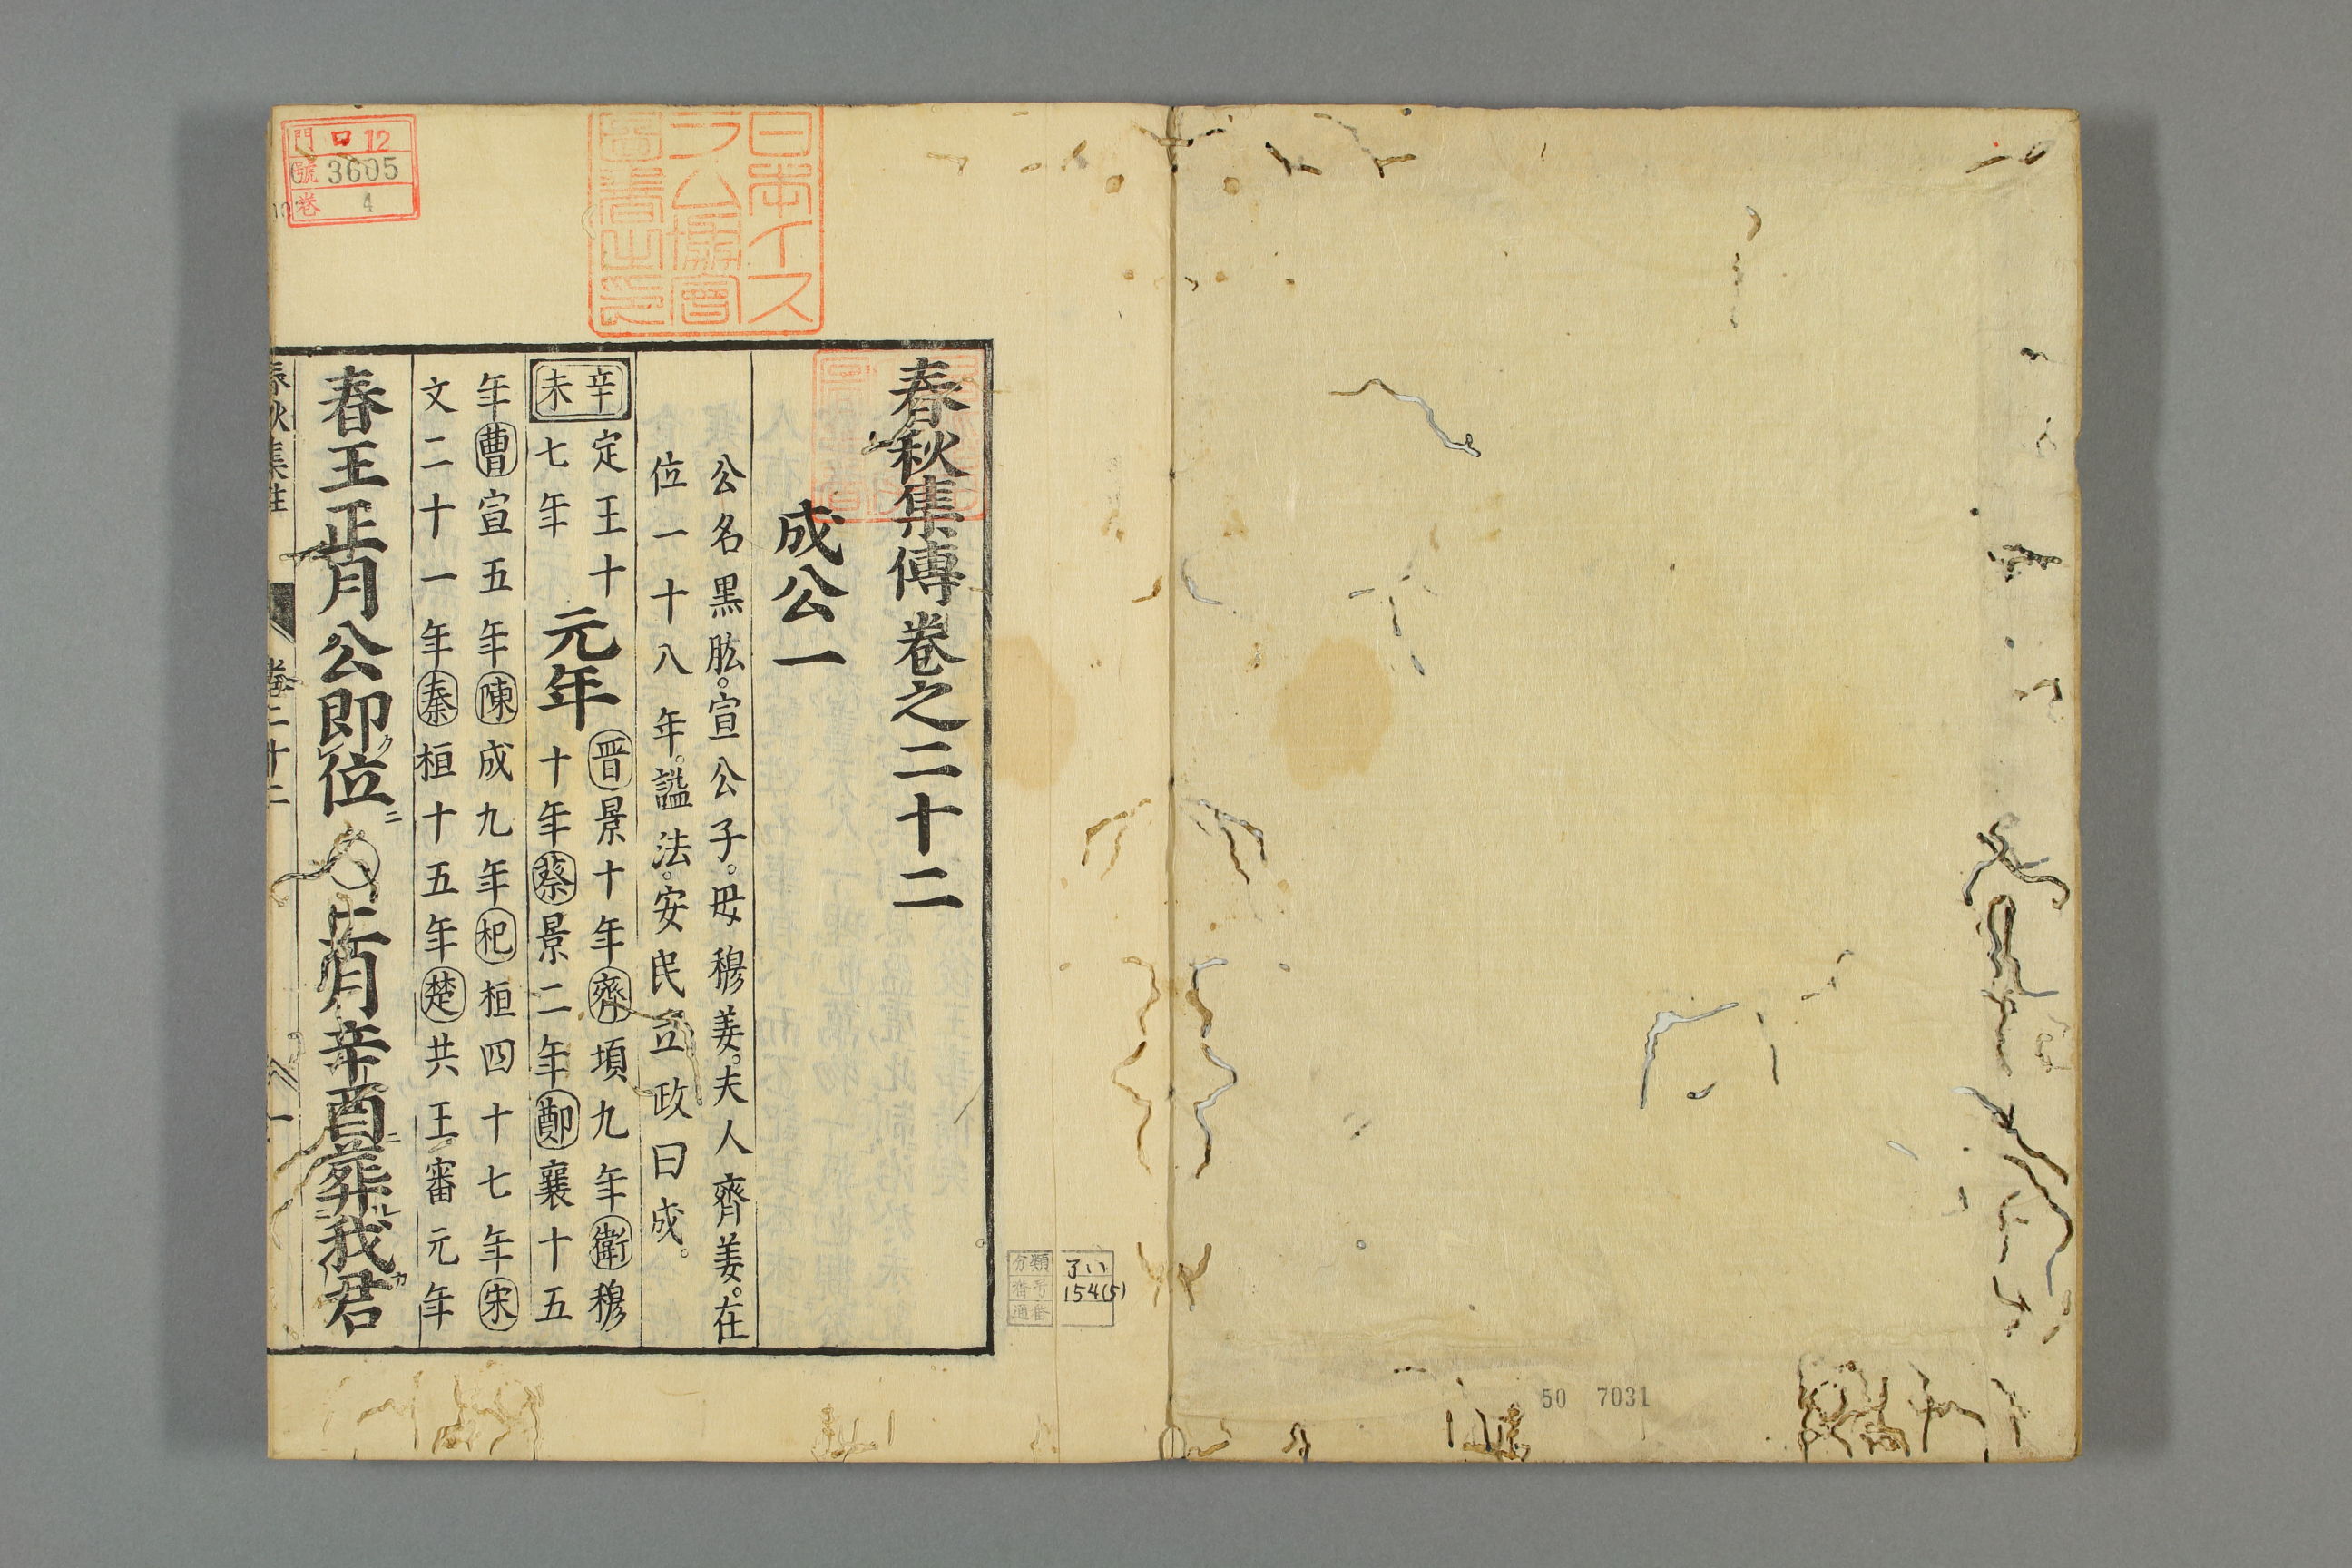 春秋集傳卷之二十二
成公一
公名黒肱。宣公子。母穆姜。夫人齊姜。在
位一十八年。謚法。安民立政曰成。
辛未
定王十
七年
元年
晋景十年齊頃九年衛穆
十年蔡景二年鄭襄十五
年曹宣五年陳成九年杞桓四十七年宋
文二十一年秦桓十五年楚共王審元年
春王正月公即クレ位ニ○二月辛酉ニ葬ルニ我カ君
春秋集註 卷二十二 一
日本イス
ラム協會
圖書之印
門 ロ 12
號 3605
卷 4
分類
番号
通番
ろい
154(5)
50 7031